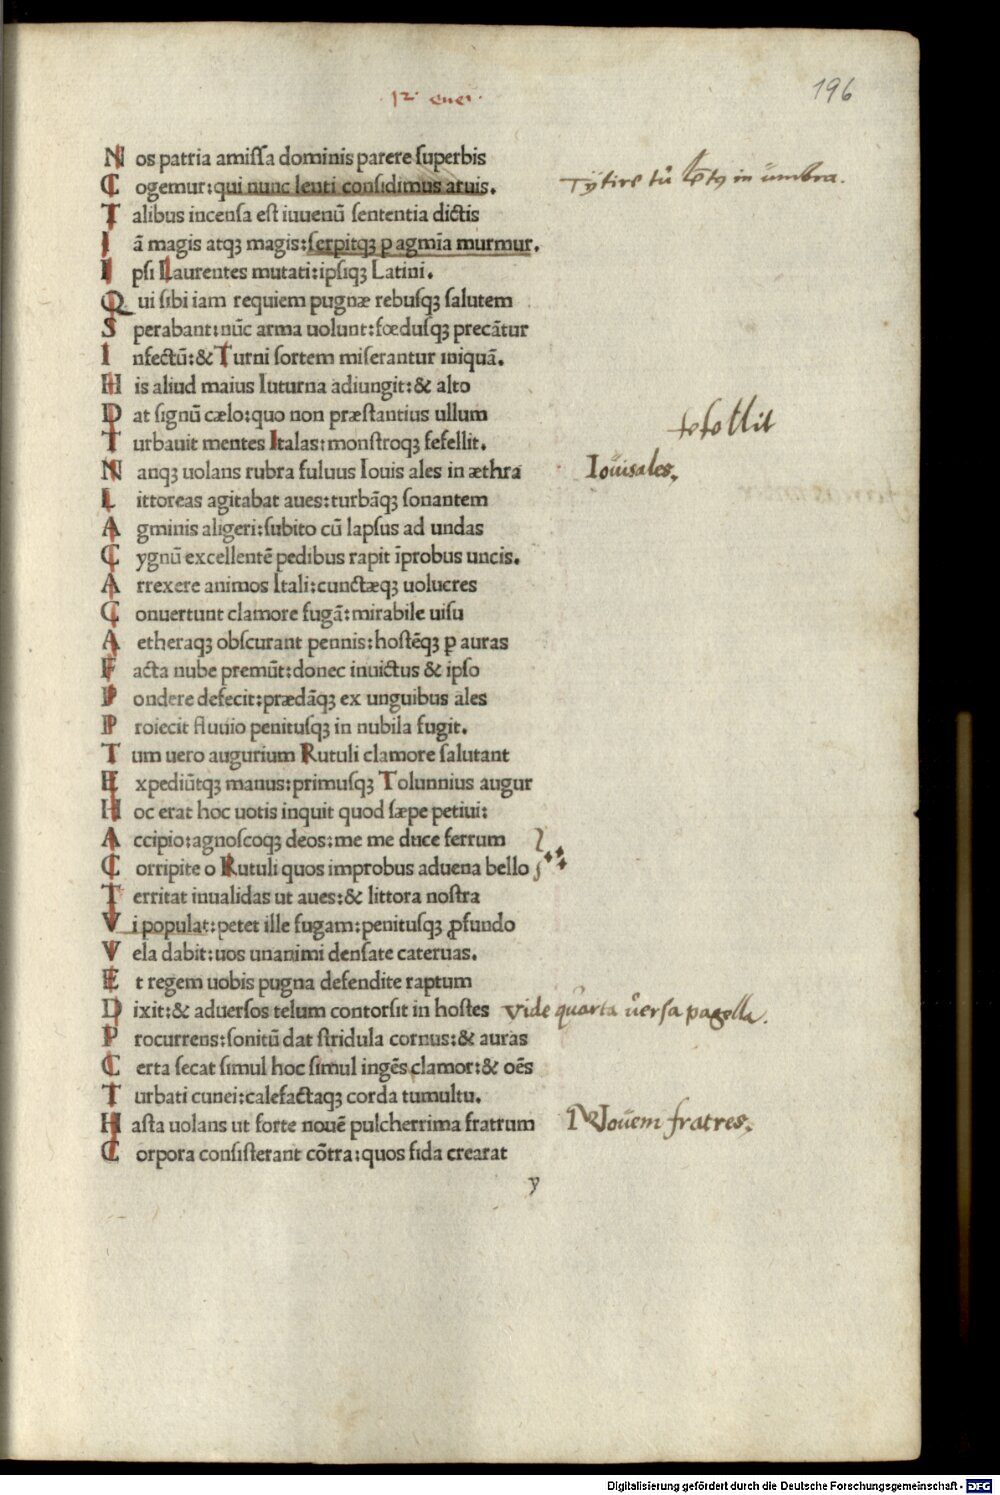 196
12 enei
Nos patria amiſſa dominis parere ſuperbis
Cogemur:qui nunc lenti conſidimus aruis. Tytire tu lētus in umbra.
Talibus incenſa eſt iuuenū ſententia dictis
Iā magis atqꝫ magis:ſerpitqꝫ ꝑ agmīa murmur.
Ipſi Laurentes mutati:ipſiqꝫ Latini.
Qui ſibi iam requiem pugnæ rebuſqꝫ ſalutem
Sperabant:nūc arma uolunt:fœduſqꝫ precātur
Infectū:& Turni ſortem miſerantur iniquā.
His aliud maius Iuturna adiungit:& alto
Dat ſignū cælo:quo non præſtantius ullum
Turbauit mentes Italas:monſtroqꝫ fefellit. fefellit
Nanqꝫ uolans rubra fuluus Iouis ales in æthra Iouisales.
Littoreas agitabat aues:turbāqꝫ ſonantem
Agminis aligeri:ſubito cū lapſus ad undas
Cygnū excellentē pedibus rapit īprobus uncis.
Arrexere animos Itali:cunctæqꝫ uolucres
Conuertunt clamore fugā:mirabile uiſu
Aetheraqꝫ obſcurant pennis:hoſtēqꝫ ꝑ auras
Facta nube premūt:donec inuictus & ipſo
Pondere defecit:prædāqꝫ ex unguibus ales
Proiecit fluuio penituſqꝫ in nubila fugit.
Tum uero augurium Rutuli clamore ſalutant
Expediūtqꝫ manus:primuſqꝫ Tolunnius augur
Hoc erat hoc uotis inquit quod ſæpe petiui:
Accipio:agnoſcoqꝫ deos:me me duce ferrum
Corripite o Rutuli quos improbus aduena bello
Territat inualidas ut aues:& littora noſtra
Vi populat:petet ille fugam:penituſqꝫ ꝓfundo
Vela dabit:uos unanimi denſate cateruas.
Et regem uobis pugna defendite raptum
Dixit:& aduerſos telum contorſit in hoſtes Vide quarta uerſa pagella.
Procurrens:ſonitū dat ſtridula cornus:& auras
Certa ſecat ſimul hoc ſimul ingēs clamor:& oēs
Turbati cunei:calefactaqꝫ corda tumultu.
Haſta uolans ut forte nouē pulcherrima fratrum Nouem fratres.
Corpora conſiſterant cōtra:quos fida crearat
y
Digitalisierung gefördert durch die Deutsche Forschungsgemeinschaft - DFG